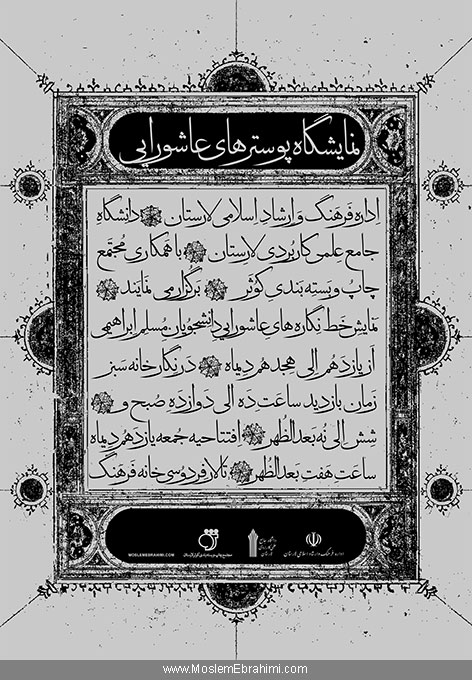 نمایشگاه پوسترهای عاشورایی
اداره فرهنگ و ارشاد اسلامی لارستان دانشگاه
جامع علمی کاربردی لارستان با همکاری مجتمع
چاپ و بسته بندی کوثر برگزار می نمایند
نمایش خط نگاره های عاشورایی دانشجویان مسلم ابراهیمی
از یازدهم الی هجدهم دیماه در نگارخانه سبز
زمان بازدید ساعت ده الی دوازده صبح و
شش الی نه بعد الظهر افتتاحیه جمعه یازدهم دیماه
ساعت هفت بعد الظهر تالار فردوسی خانه فرهنگ
اداره فرهنگ و ارشاد اسلامی لارستان
MOSLEMEBRAHIMI.COM
www.MoslemEbrahimi.com